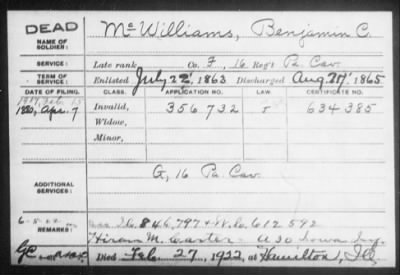 DEAD
NAME OF SOLDIER:
McWilliams, Benjamin C.
SERVICE:
Late rank, Co. F, 16 Reg't Pa. Cav.
TERM OF SERVICE:
Enlisted July 22, 1863 Discharged Aug. 1865
DATE OF FILING. CLASS. APPLICATION NO. LAW. CERTIFICATE NO.
Feb. 15
1880, Apr. 7 Invalid, 356,732 634,385
Widow,
Minor,
ADDITIONAL SERVICES:
G, 16 Pa Cav.
REMARKS:
846,797 612592
Hiram M. Carter - A 30 Iowa Inf.
Died Feb. 27, 1922, at Hamilton, Ill.